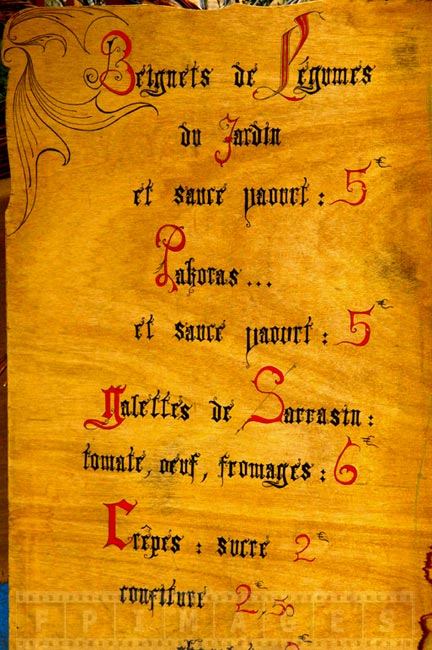 Beignets de Légumes
du Jardin
et sauce yaourt : 5€
Pakoras...
et sauce yaourt : 5€
Galettes de Sarrasin :
tomate, oeuf, fromages : 6€
Crêpes : sucre 2€
confiture 2,50€
FPIMAGES